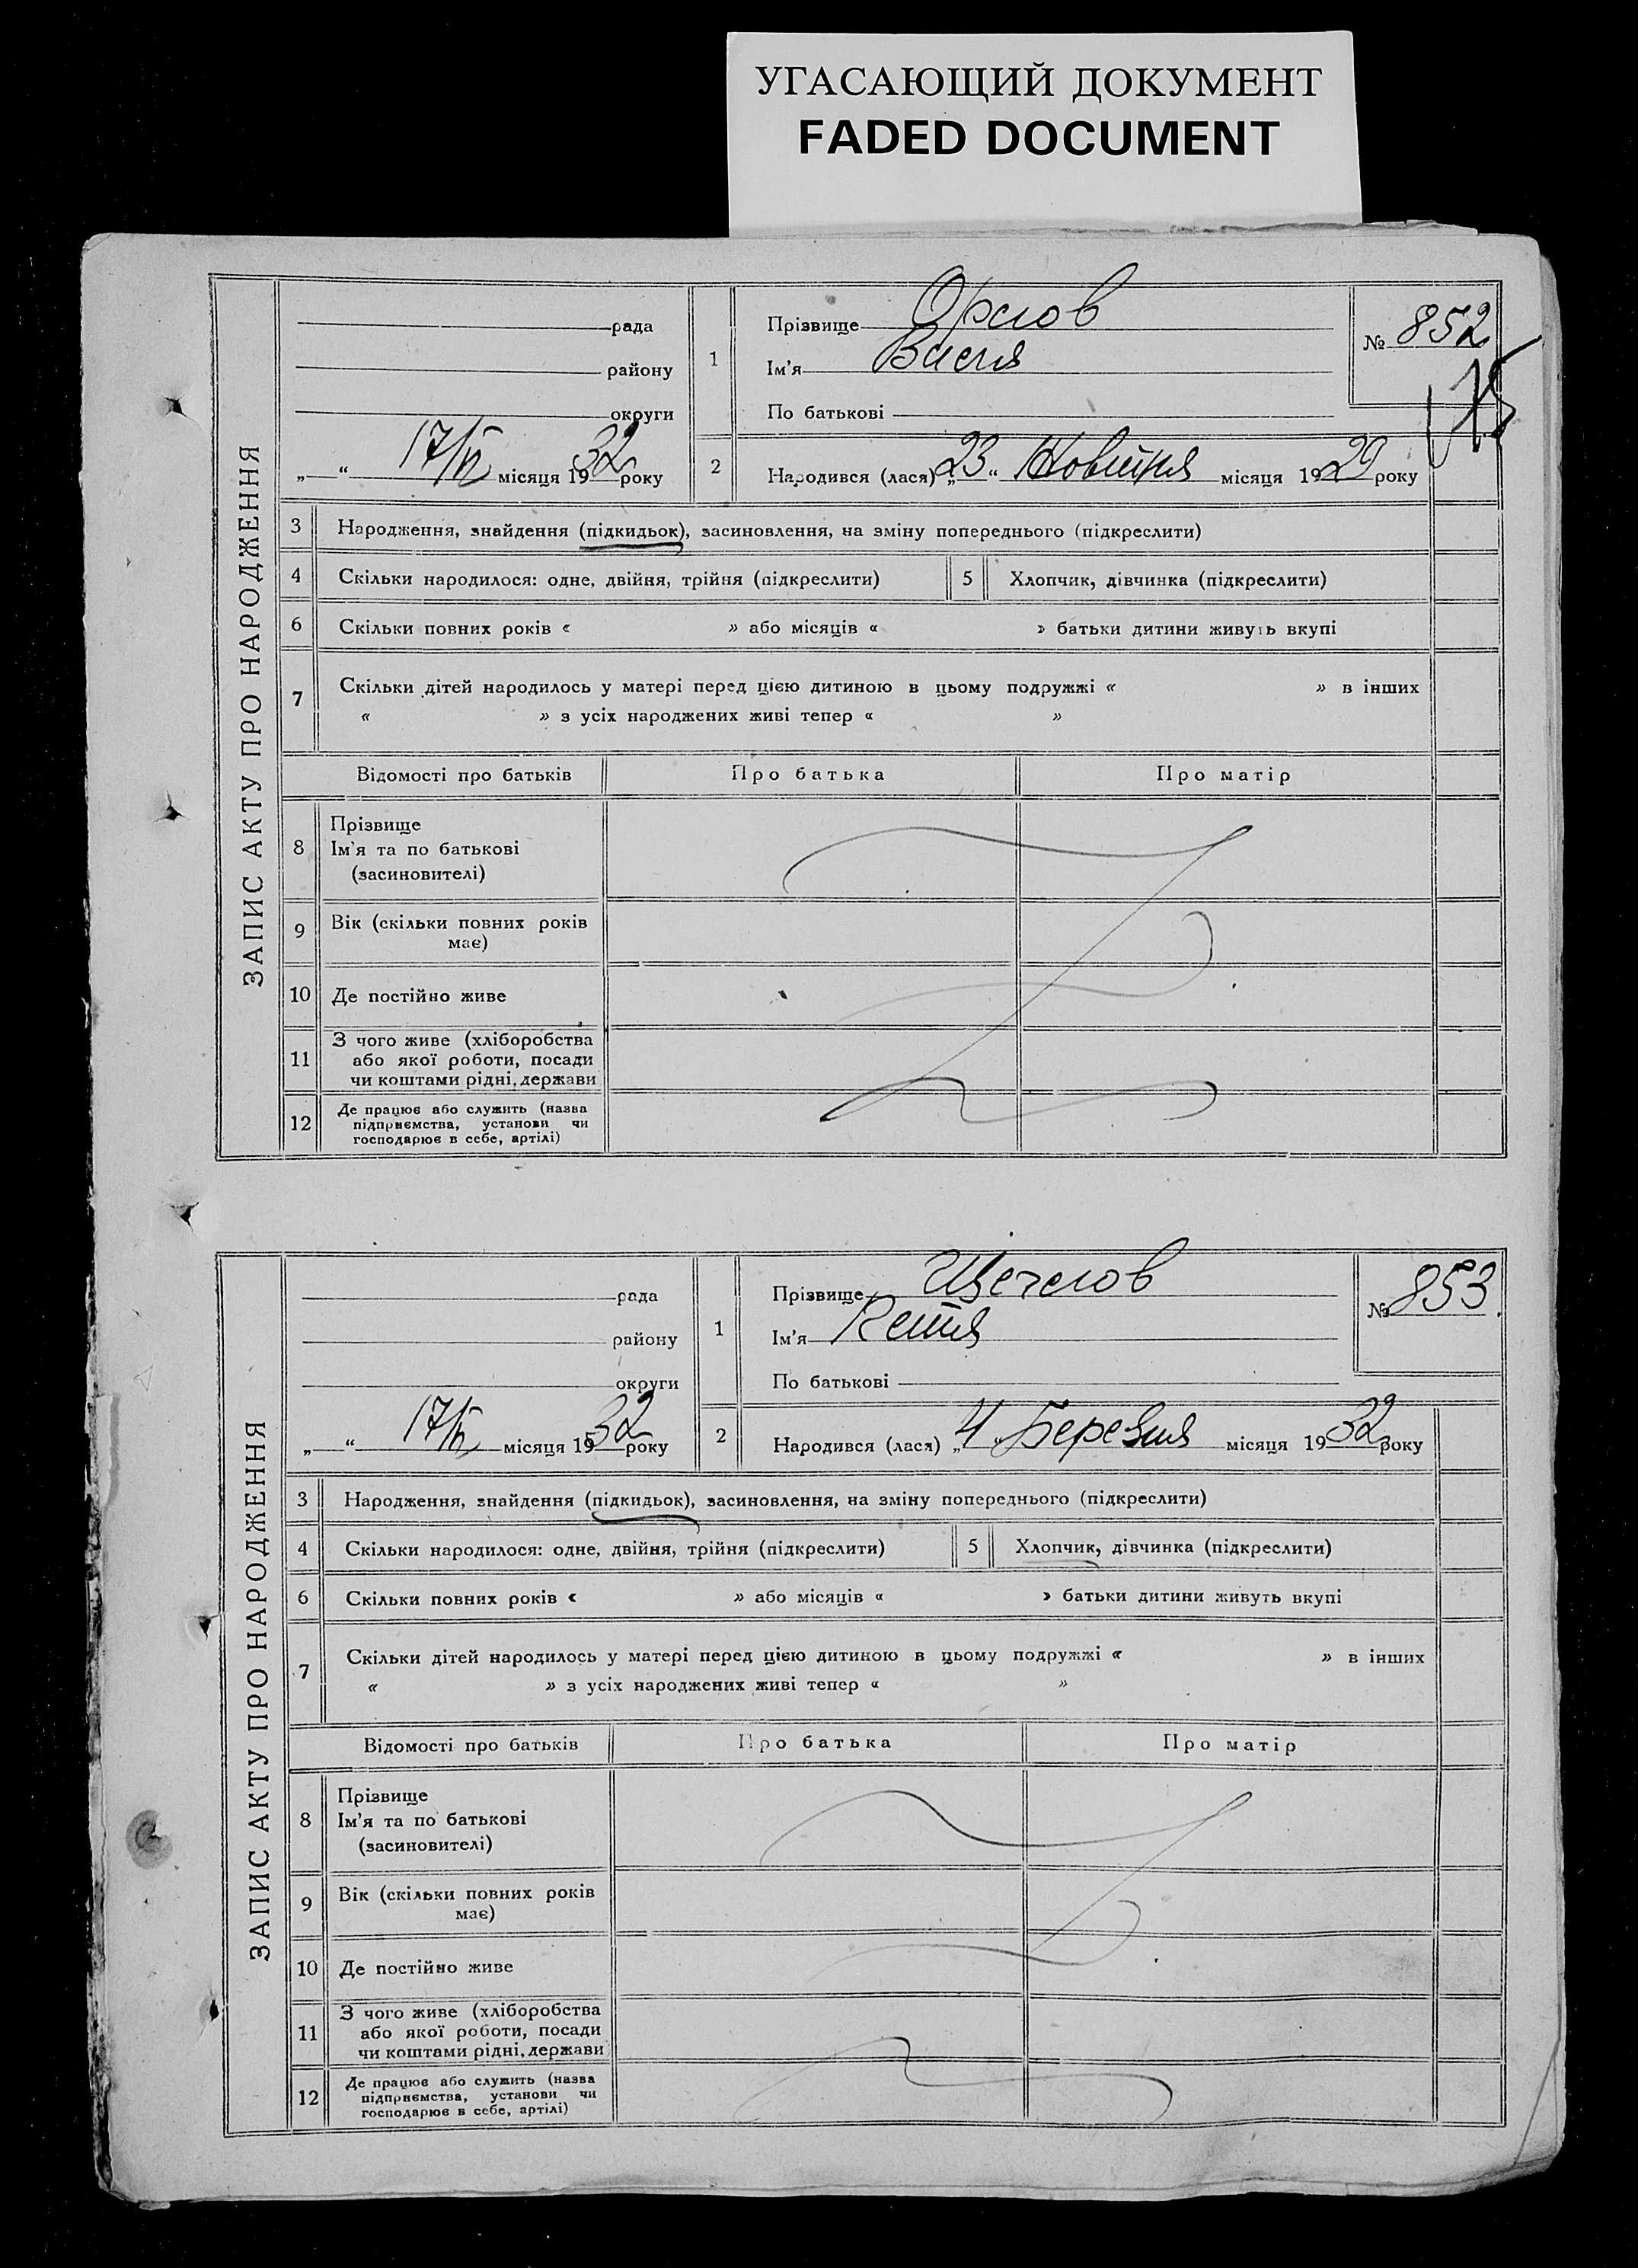 УГАСАЮЩИЙ ДОКУМЕНТ
FADED DOCUMENT
ЗАПИС АКТУ ПРО НАРОДЖЕННЯ
рада
району
округи
„ “ 17/VI місяця 1932 року
1
Прізвище Орлов
Ім'я Вася
По батькові
№ 852
2
Народився (лася) „23“ Жовтня місяця 1929 року
3 Народження, знайдення (підкидьок), засиновлення, на зміну попереднього (підкреслити)
4 Скільки народилося: одне, двійня, трійня (підкреслити) 5 Хлопчик, дівчинка (підкреслити)
6 Скільки повних років « » або місяців « » батьки дитини живуть вкупі
7 Скільки дітей народилось у матері перед цією дитиною в цьому подружжі « » в інших
« » з усіх народжених живі тепер « »
Відомості про батьків Про батька Про матір
8 Прізвище
Ім'я та по батькові
(засиновителі)
9 Вік (скільки повних років
має)
10 Де постійно живе
11 З чого живе (хліборобства
або якої роботи, посади
чи коштами рідні, держави
12 Де працює або служить (назва
підприємства, установи чи
господарює в себе, артілі)
ЗАПИС АКТУ ПРО НАРОДЖЕННЯ
рада
району
округи
„ “ 17/VI місяця 1932 року
1
Прізвище
Ім'я Петя
По батькові
№ 853
2
Народився (лася) „4“ Березня місяця 1932 року
3 Народження, знайдення (підкидьок), засиновлення, на зміну попереднього (підкреслити)
4 Скільки народилося: одне, двійня, трійня (підкреслити) 5 Хлопчик, дівчинка (підкреслити)
6 Скільки повних років « » або місяців « » батьки дитини живуть вкупі
7 Скільки дітей народилось у матері перед цією дитиною в цьому подружжі « » в інших
« » з усіх народжених живі тепер « »
Відомості про батьків Про батька Про матір
8 Прізвище
Ім'я та по батькові
(засиновителі)
9 Вік (скільки повних років
має)
10 Де постійно живе
11 З чого живе (хліборобства
або якої роботи, посади
чи коштами рідні, держави
12 Де працює або служить (назва
підприємства, установи чи
господарює в себе, артілі)